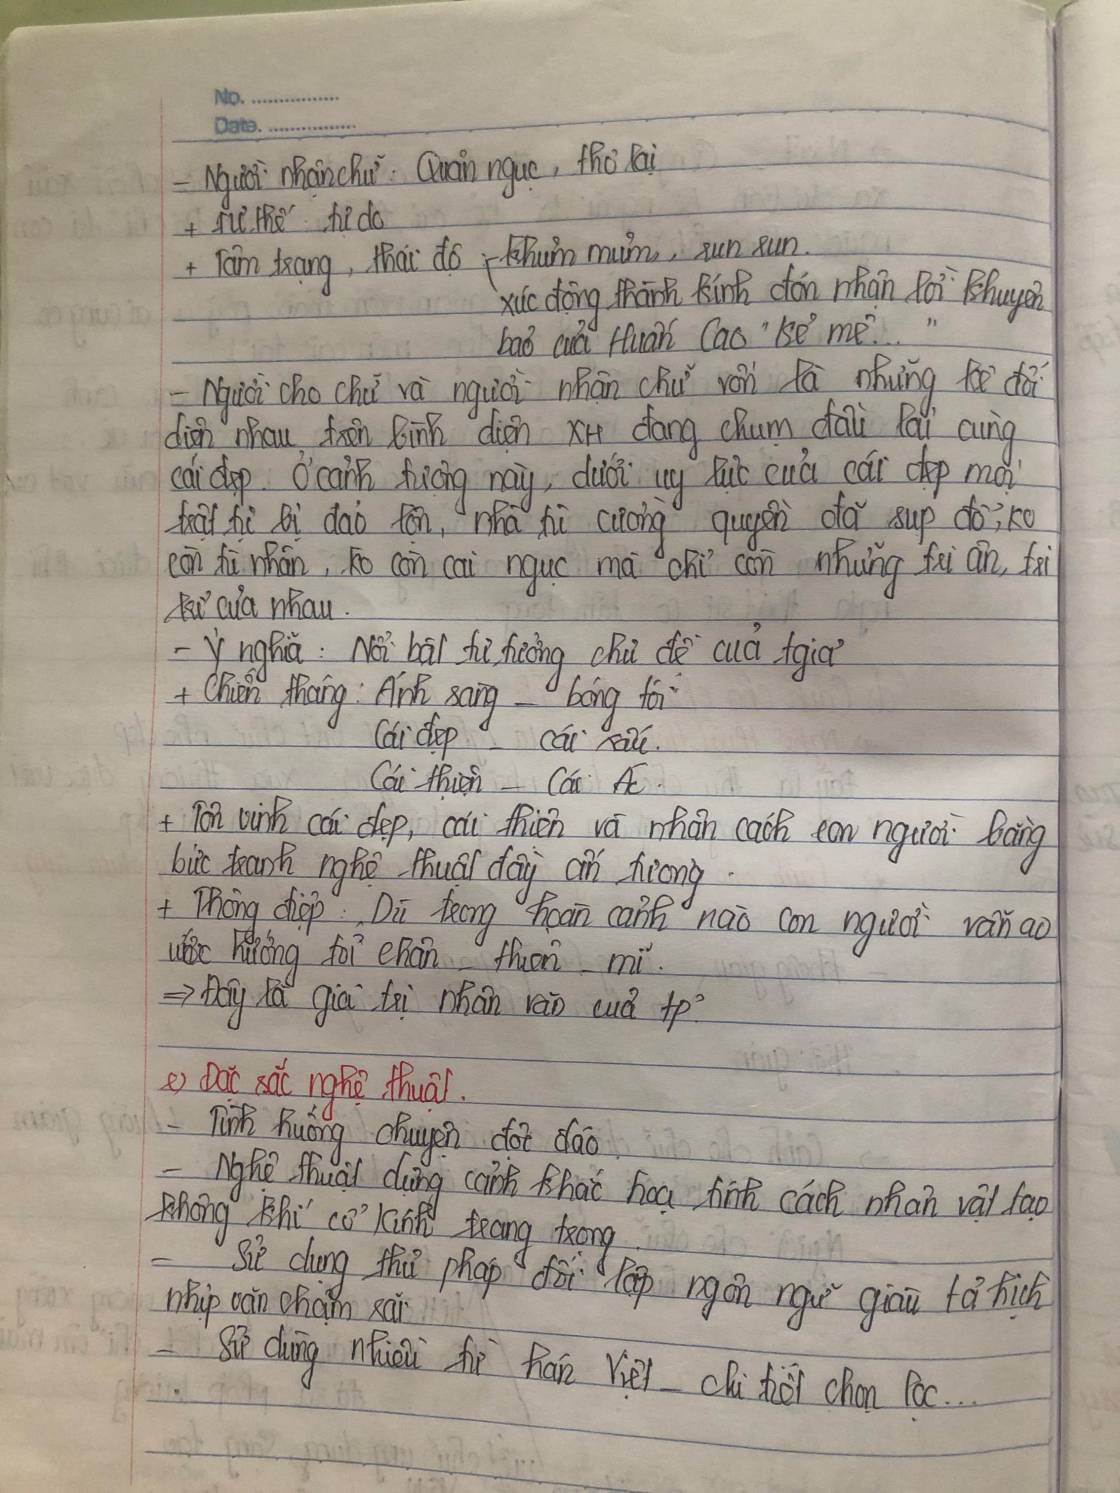 No. ................
Date. ................
- Người nhận chữ: Quản ngục, thơ lại
+ tư thế: tự do
+ Tâm trạng, thái độ khúm núm, run run.
xúc động thành kính đón nhận lời khuyên
bảo của Huấn Cao "kẻ mê... "
- Người cho chữ và người nhận chữ vốn là những kẻ đối
diện nhau trên bình diện XH đang chụm đầu lại cùng
cái đẹp. Ở cảnh tượng này, dưới uy lực của cái đẹp mọi
trật tự bị đảo lộn, nhà tù cường quyền đã sụp đổ, ko
còn tù nhân, ko còn cai ngục mà chỉ còn những tri ân, tri
kỉ của nhau.
- Ý nghĩa: Nổi bật tư tưởng chủ đề của tgiả
+ Chiến thắng: Ánh sáng - bóng tối
Cái đẹp - cái xấu.
Cái thiện - Cái Ác.
+ Tôn vinh cái đẹp, cái thiện và nhân cách con người bằng
bức tranh nghệ thuật đầy ấn tượng.
+ Thông điệp: Dù trong hoàn cảnh nào con người vẫn ao
ước hướng tới chân - thiện - mĩ.
⇒ Đây là giá trị nhân văn của tp
e) Đặc sắc nghệ thuật.
- Tình huống chuyện độc đáo
- Nghệ thuật dựng cảnh khắc hoạ tính cách nhân vật tạo
không khí cổ kính trang trọng.
- Sử dụng thủ pháp đối lập ngôn ngữ giàu tả kịch
nhịp văn chậm rãi
- Sử dụng nhiều từ hán Việt - chi tiết chọn lọc...